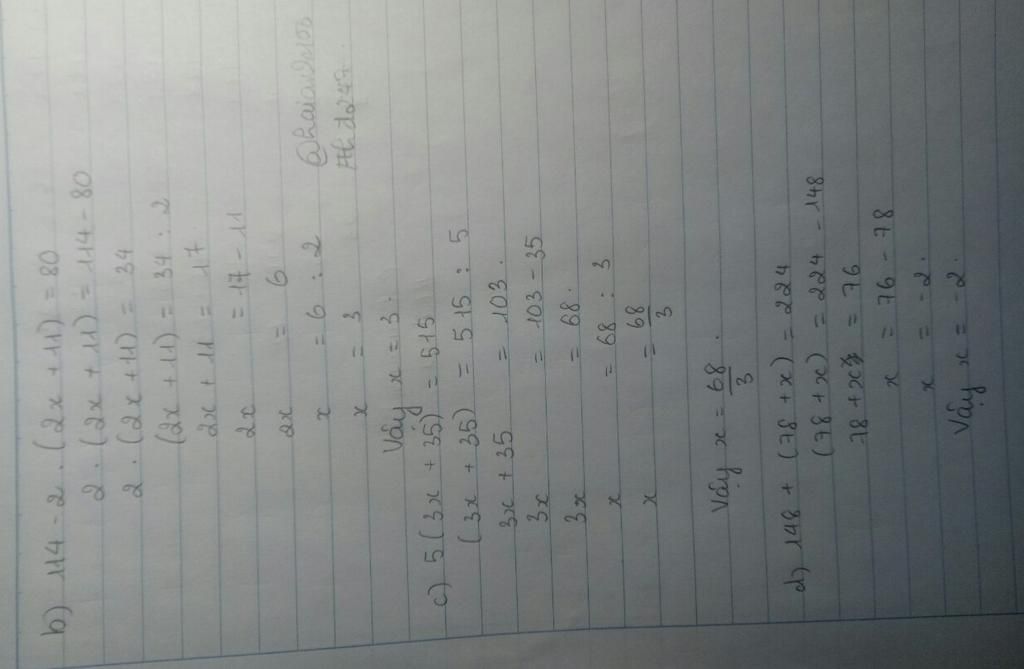 b) 114 - 2 . (2x + 11) = 80
2 . (2x + 11) = 114 - 80
2 . (2x + 11) = 34
(2x + 11) = 34 : 2
2x + 11 = 17
2x = 17 - 11
2x = 6
x = 6 : 2
x = 3
Vậy x = 3.
c) 5 (3x + 35) = 515
(3x + 35) = 515 : 5
3x + 35 = 103.
3x = 103 - 35
3x = 68.
x = 68 : 3
x = 68/3
Vậy x = 68/3.
d) 148 + (78 + x) = 224
(78 + x) = 224 - 148
78 + x = 76
x = 76 - 78
x = -2.
Vậy x = -2.